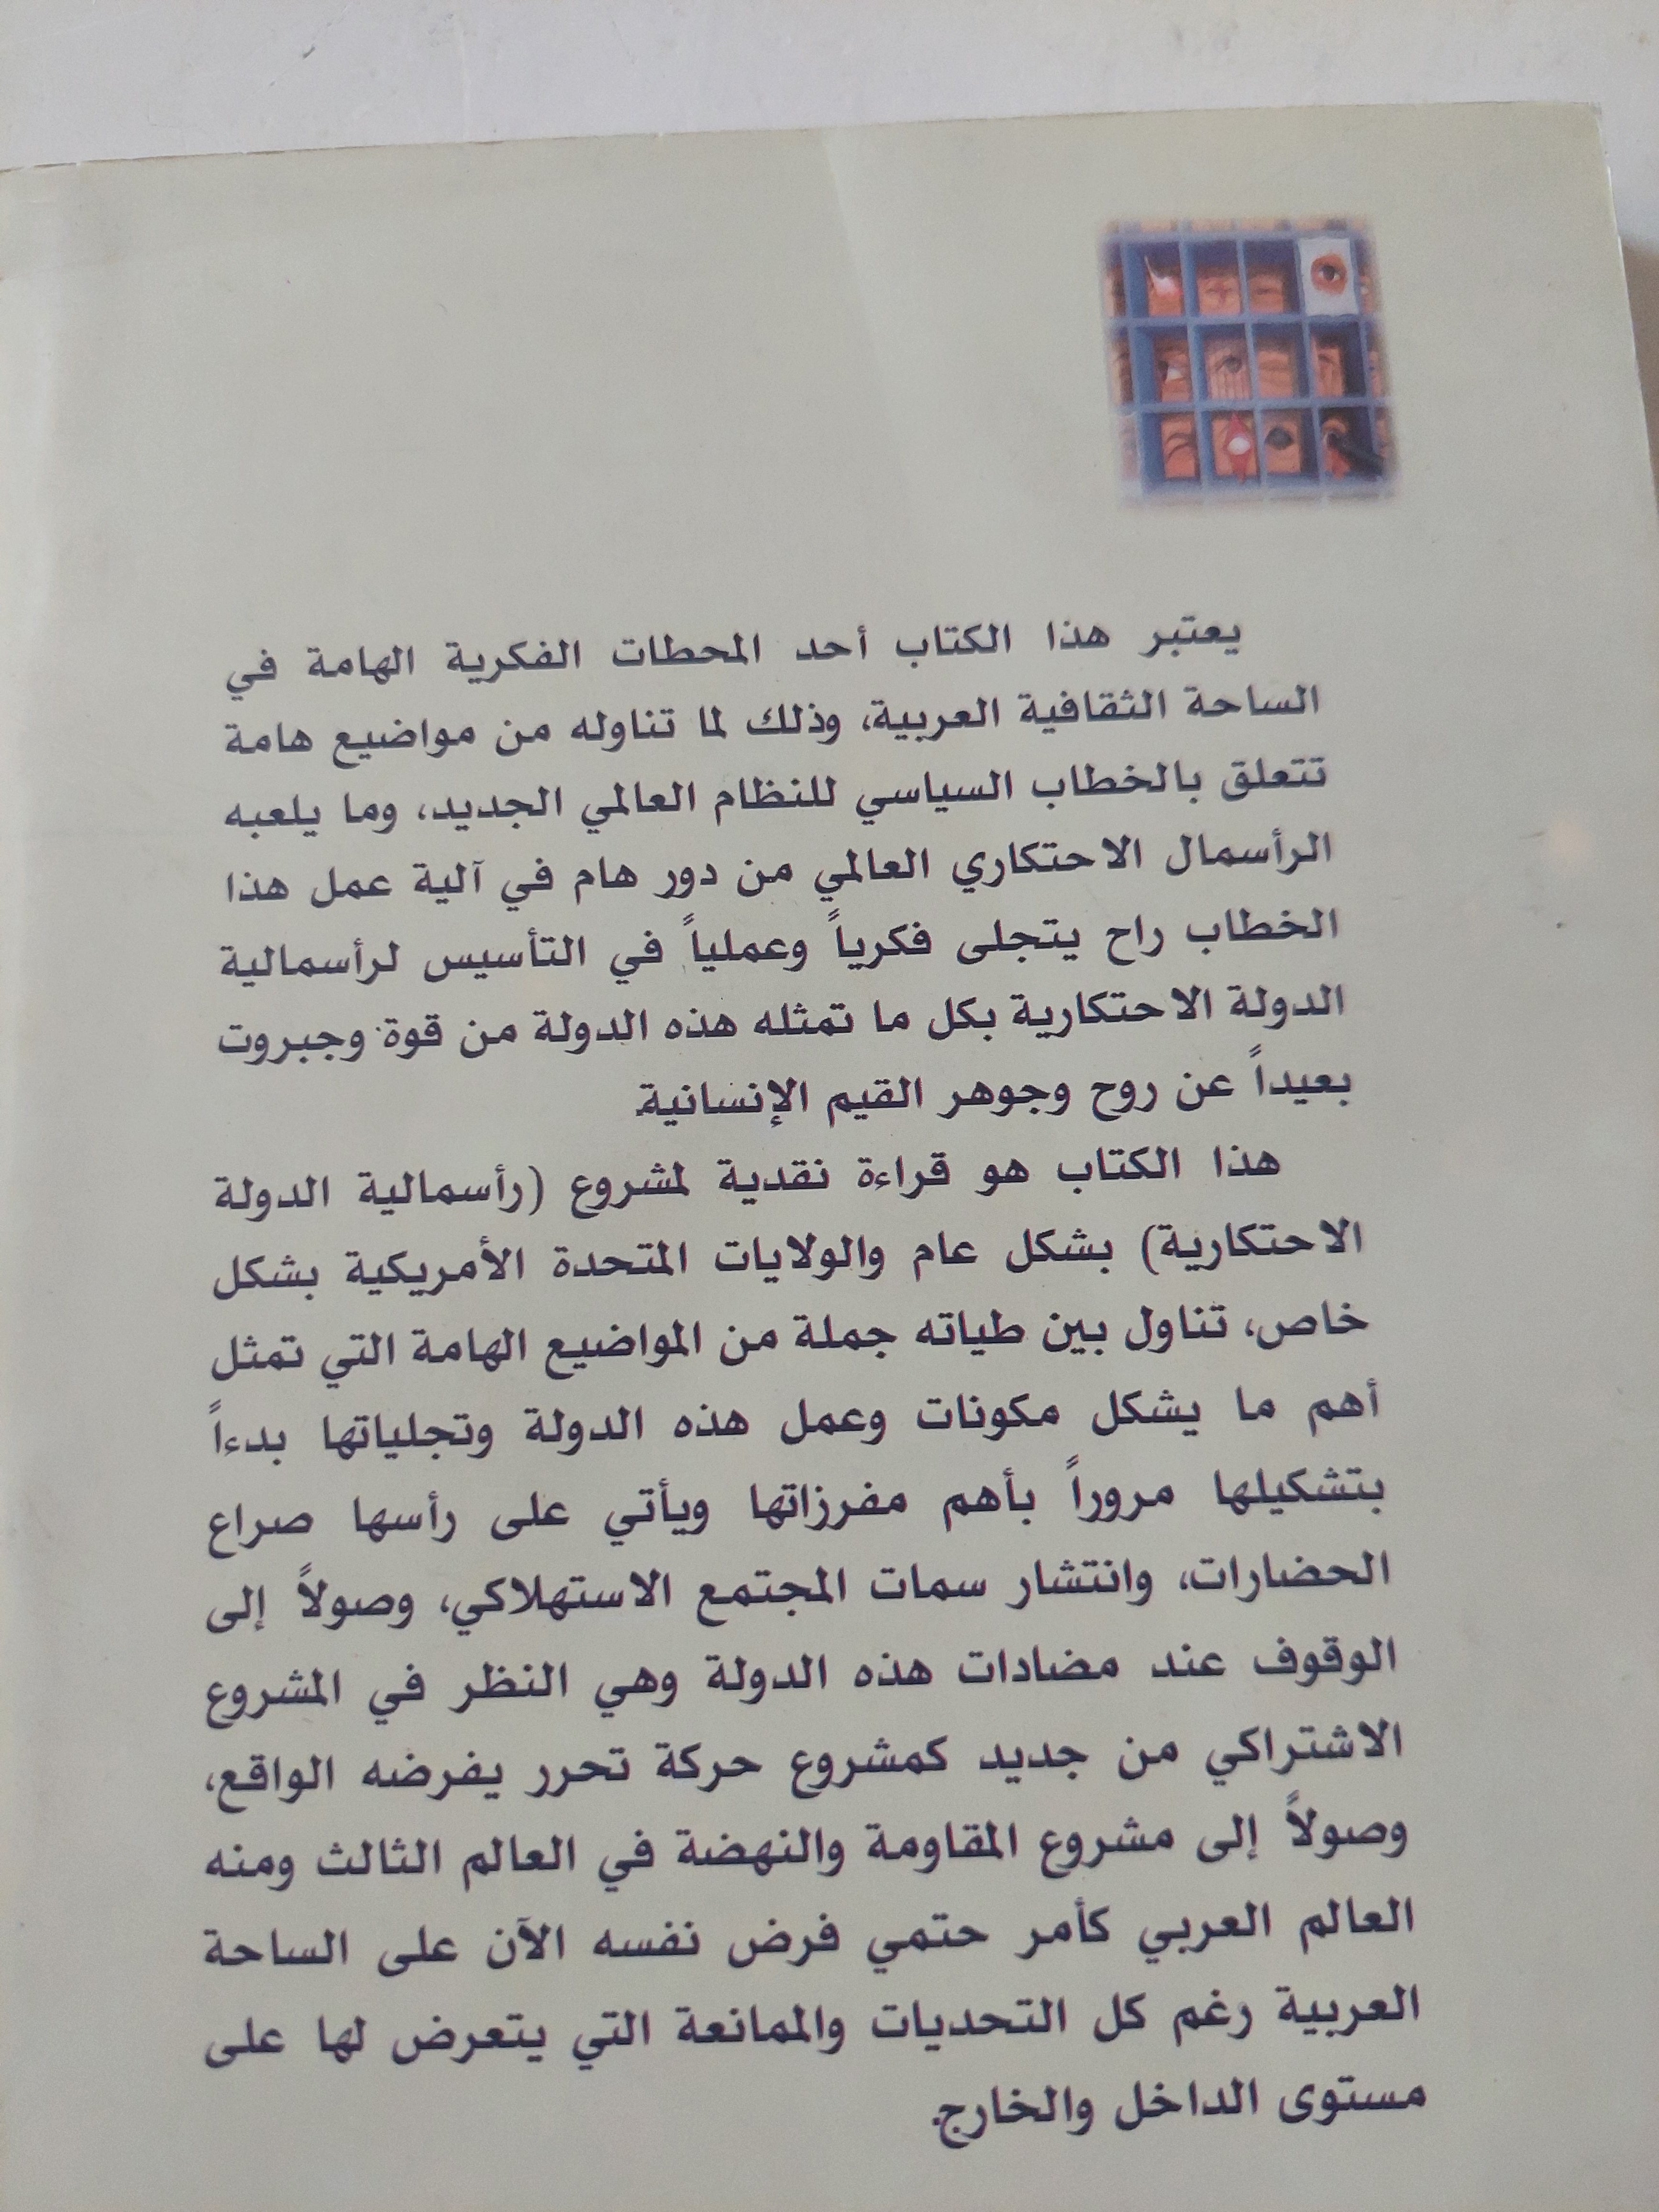 يعتبر هذا الكتاب أحد المحطات الفكرية الهامة في
الساحة الثقافية العربية، وذلك لما تناوله من مواضيع هامة
تتعلق بالخطاب السياسي للنظام العالمي الجديد، وما يلعبه
الرأسمال الاحتكاري العالمي من دور هام في آلية عمل هذا
الخطاب راح يتجلى فكرياً وعملياً في التأسيس لرأسمالية
الدولة الاحتكارية بكل ما تمثله هذه الدولة من قوة وجبروت
بعيداً عن روح وجوهر القيم الإنسانية.
هذا الكتاب هو قراءة نقدية لمشروع (رأسمالية الدولة
الاحتكارية) بشكل عام والولايات المتحدة الأمريكية بشكل
خاص، تناول بين طياته جملة من المواضيع الهامة التي تمثل
أهم ما يشكل مكونات وعمل هذه الدولة وتجلياتها بدءاً
بتشكيلها مروراً بأهم مفرزاتها ويأتي على رأسها صراع
الحضارات، وانتشار سمات المجتمع الاستهلاكي، وصولاً إلى
الوقوف عند مضادات هذه الدولة وهي النظر في المشروع
الاشتراكي من جديد كمشروع حركة تحرر يفرضه الواقع،
وصولاً إلى مشروع المقاومة والنهضة في العالم الثالث ومنه
العالم العربي كأمر حتمي فرض نفسه الآن على الساحة
العربية رغم كل التحديات والممانعة التي يتعرض لها على
مستوى الداخل والخارج.